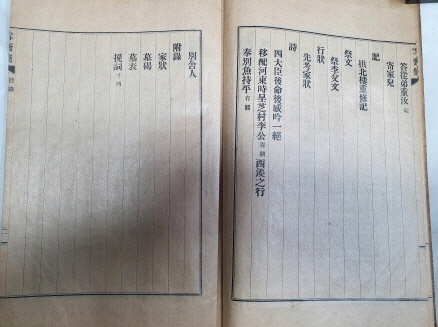 答從弟重汝
寄家兒
記
拱北樓重修記
祭文
祭李友文
行狀
先考家狀
詩
四大臣後命後感吟一絕
移配河東時呈芝村李公喜朝西渡之行
奉別魚持平有龍
別舍人
附錄
家狀
墓碣
墓表
挽詞十四